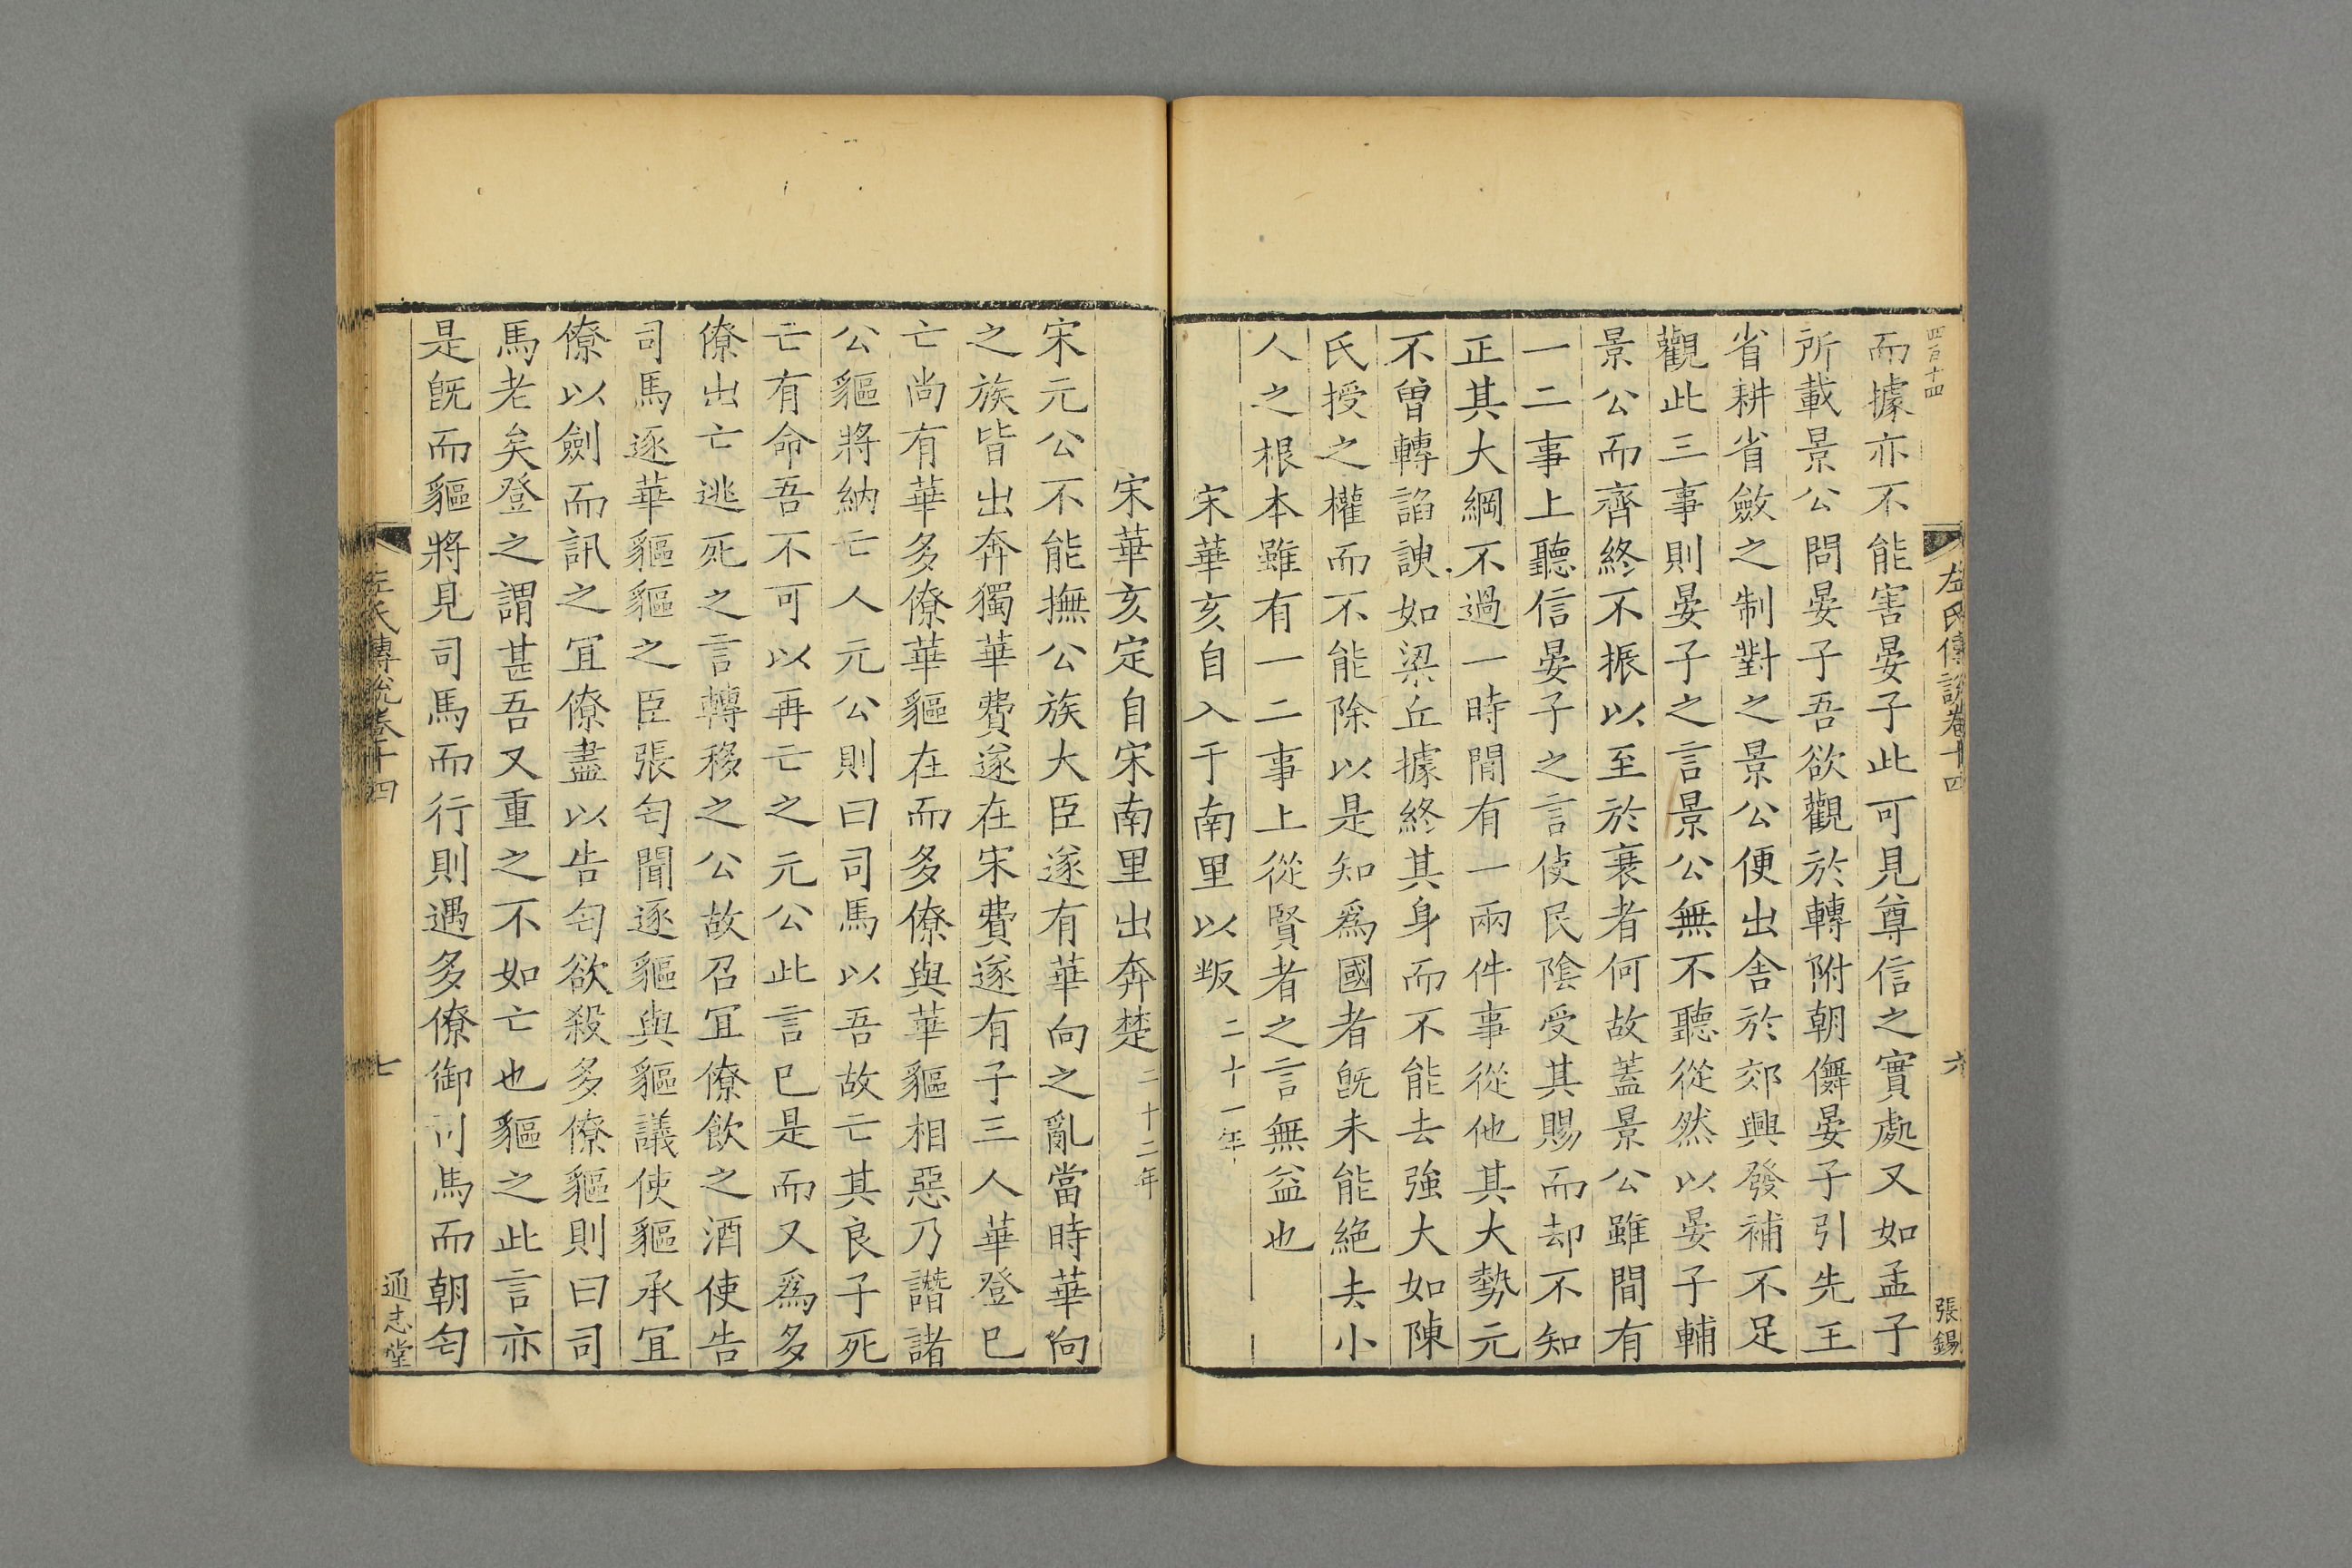 四百十四
左氏傳說卷十四
六
張錫
而據亦不能害晏子此可見尊信之實處又如孟子
所載景公問晏子吾欲觀於轉附朝儛晏子引先王
省耕省斂之制對之景公便出舍於郊興發補不足
觀此三事則晏子之言景公無不聽從然以晏子輔
景公而齊終不振以至於衰者何故蓋景公雖間有
一二事上聽信晏子之言使民陰受其賜而却不知
正其大綱不過一時間有一兩件事從他其大勢元
不曾轉諂諛如梁丘據終其身而不能去強大如陳
氏授之權而不能除以是知爲國者旣未能絶去小
人之根本雖有一二事上從賢者之言無益也
宋華亥自入于南里以叛二十一年
宋華亥定自宋南里出奔楚二十二年
宋元公不能撫公族大臣遂有華向之亂當時華向
之族皆出奔獨華費遂在宋費遂有子三人華登巳
亡尚有華多僚華貙在而多僚與華貙相惡乃譖諸
公貙將納亡人元公則曰司馬以吾故亡其良子死
亡有命吾不可以再亡之元公此言已是而又爲多
僚出亡逃死之言轉移之公故召宜僚飲之酒使告
司馬逐華貙貙之臣張匄聞逐貙與貙議使貙承宜
僚以劍而訊之宜僚盡以告匄欲殺多僚貙則曰司
馬老矣登之謂甚吾又重之不如亡也貙之此言亦
是旣而貙將見司馬而行則遇多僚御司馬而朝匄
左氏傳說卷十四
七
通志堂